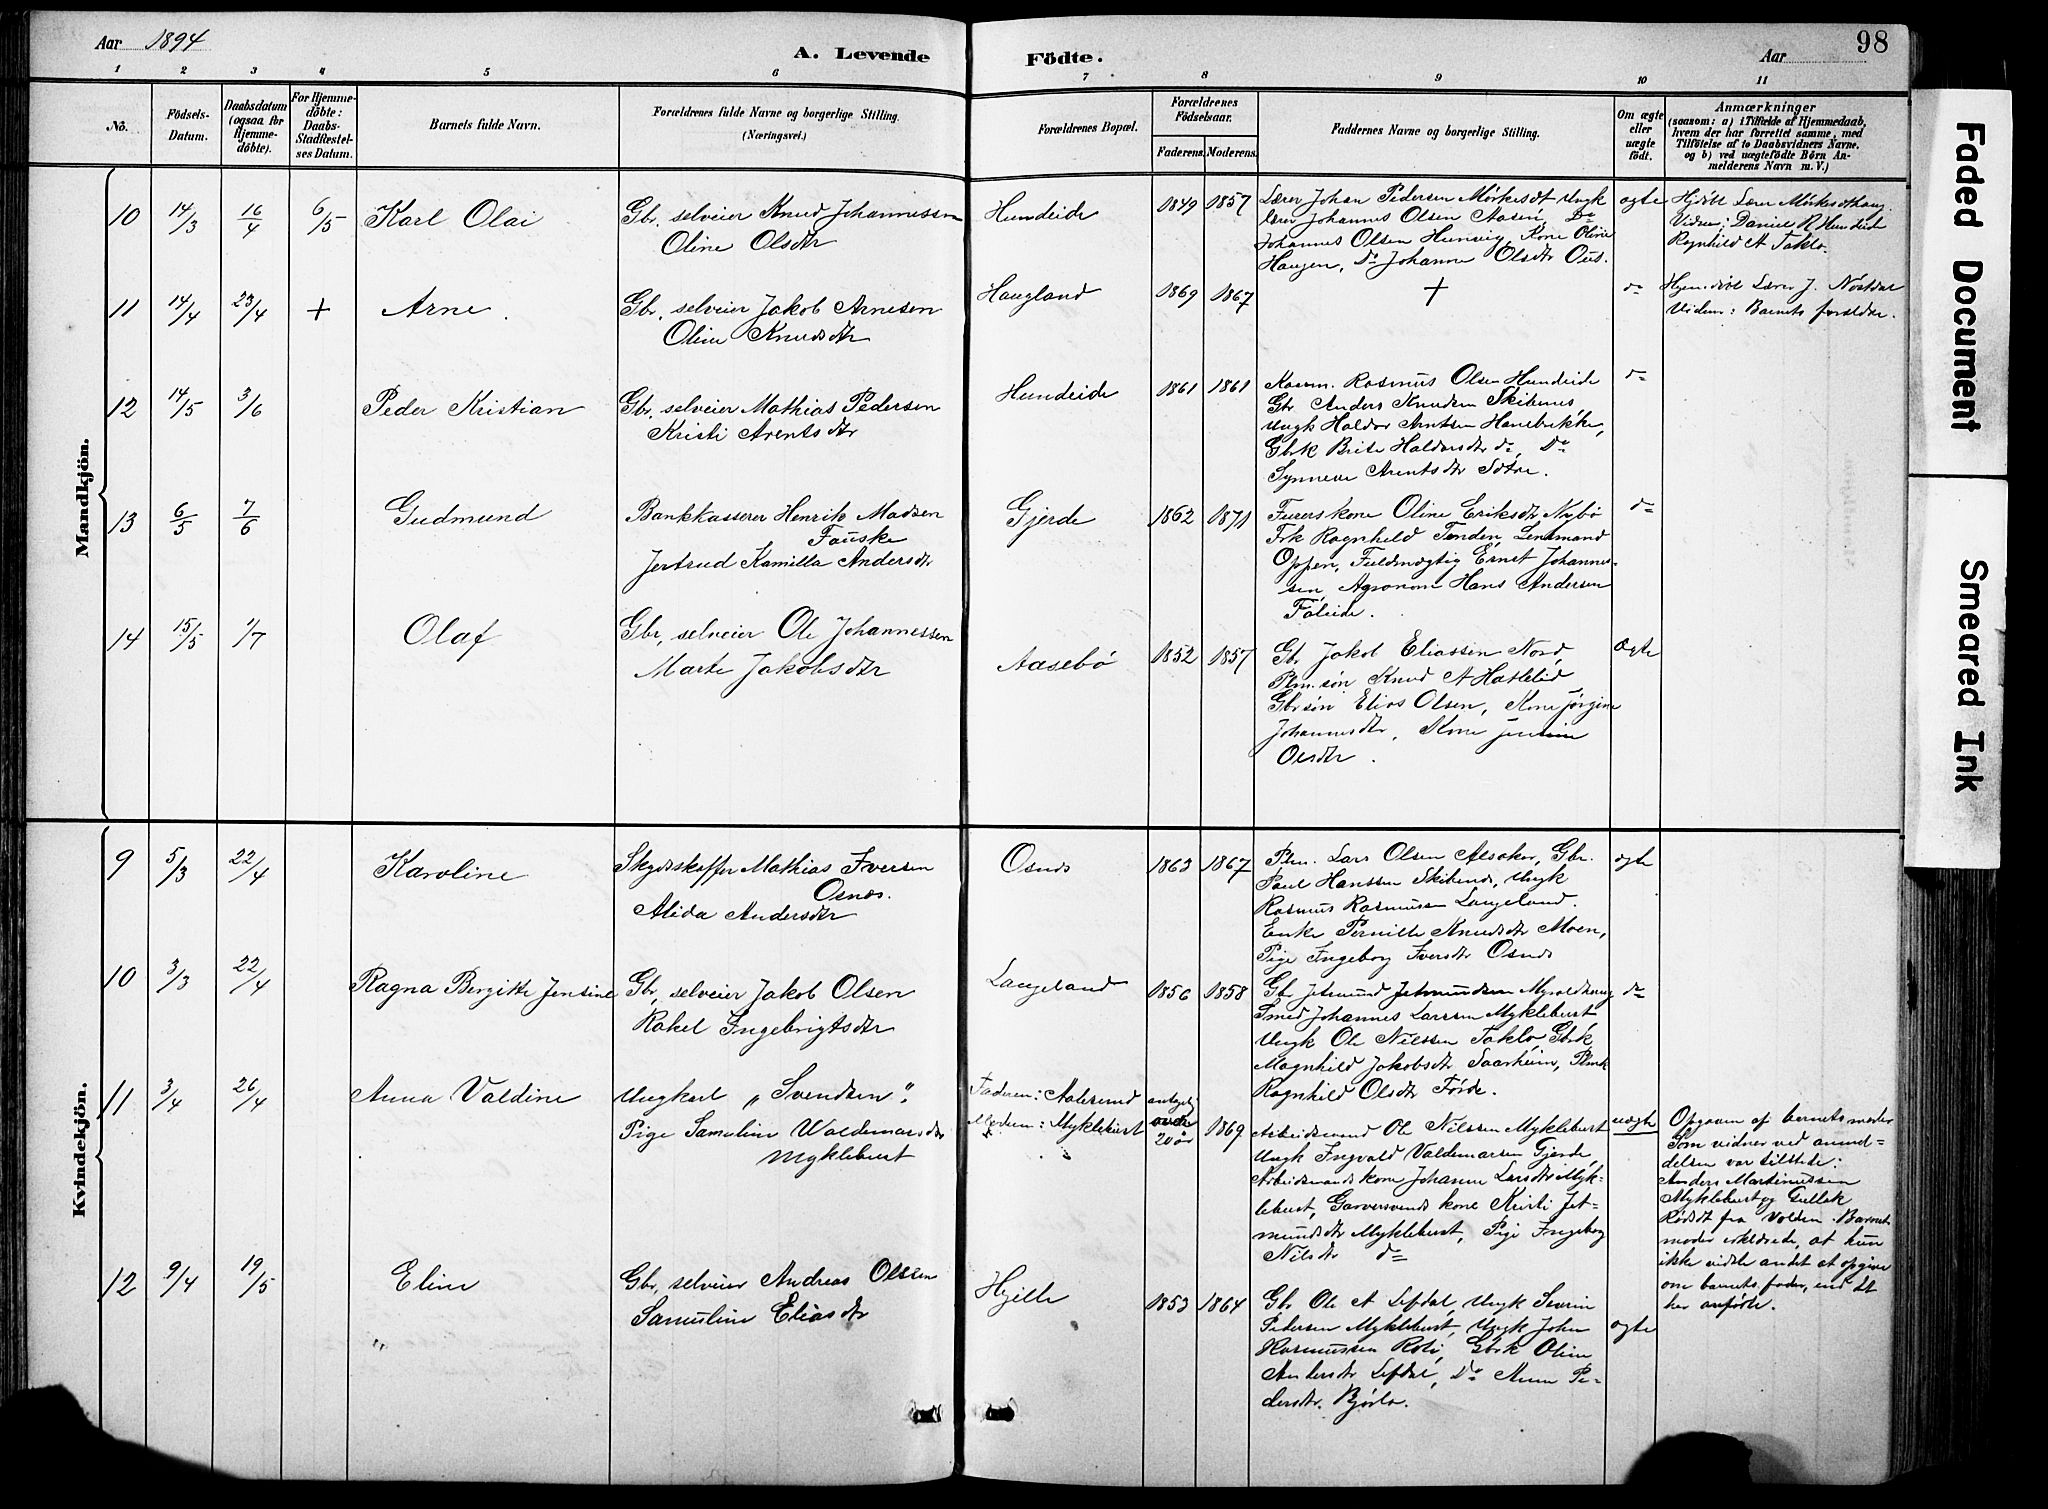 Aar 1894
A. Levende Födte.
Aar
98
1 2 3 4 5 6 7 8 9 10 11
No.
Födsels-Datum.
Daabsdatum (ogsaa for Hjemme-döbte).
For Hjemme-döbte: Daabs-Stadfæstel-ses Datum.
Barnets fulde Navn.
Forældrenes fulde Navne og borgerlige Stilling. (Næringsvei.)
Forældrenes Bopæl.
Forældrenes Födselsaar.
Faderens. Moderens.
Faddernes Navne og borgerlige Stilling.
Om ægte eller uægte födt.
Anmærkninger
(saasom: a) i Tilfælde af Hjemmedaab,
hvem der har forrettet samme, med
Tilföielse af to Daabsvidners Navne.
og b) ved uægtefödte Börn An-
melderens Navn m. V.)
Mandkjön.
10 14/3 16/4 6/5 Karl Olai
Gbr. selveier Knud Johannessen
Oline Olsdtr
Hundeide 1849 1857
Lærer Johan Pedersen Mørkesdt Ungk
lærer Johannes Olsen Aasen, Do
Johannes Olsen Hunvig, Kone Oline
Haugen, Do Johanne Olsdtr Ous.
ægte
Hjdöbt Lærer Mörkesdthaug.
Vidner: Daniel R Hundeid
Ragnhild A Taklo.
11 14/4 23/4 + Arne.
Gbr. selveier Jakob Arnesen
Oline Knudsdtr
Haugland 1869 1867
+
do
Hjem.döbt Lærer J. Nöstdal
Vidner: Barnets forældre.
12 14/5 3/6 Peder Kristian
Gbr. selveier Mathias Pedersen
Kristi Arentsdtr
Hundeide 1861 1861
Rasmus Olsen Hundeide
Gbr Anders Knudsen Skibenes
Ungk Haldor Arntsen Hanebrække,
Gbrk Brite Haldorsdtr do, Do
Synneve Arentsdtr Sætre.
do
13 6/5 7/6 Gudmund
Bankkasserer Henrik Madsen
Fauske
Jertrud Kamilla Andersdtr
Gjerde 1862 1871
Furerskone Oline Eriksdtr Nybø
Frk Ragnhild Tenden, Lensmand
Oppen, Fuldmægtig Ernst Johannes-
sen, Agronom Hans Andersen
Føleide.
do
14 15/5 1/7 Olaf
Gbr. selveier Ole Johannessen
Marte Jakobsdtr
Aasebø 1852 1857
Gbr Jakob Eliassen Nord,
Plm.søn Knud A Hatlelid
Gbrsøn Elias Olsen, Kone Jørgine
Johannesdtr, Kone
Olsdtr.
Ægte
Kvindekjön.
9 5/3 22/4 Karoline
Skydsskaffer Mathias Iversen
Osnes.
Alida Andersdtr
Osnes 1863 1867
Plm. Lars Olsen Alsaker, Gbr.
Paul Hanssen Skibenes, Ungk
Rasmus Rasmussen Langeland.
Enke Pernille Knudsdtr Moen,
Pige Ingeborg Iversdtr Osnes
ægte
10 3/3 22/4 Ragna Bergitte Jensine
Gbr. selveier Jakob Olsen
Rakel Ingebrigtsdtr
Langeland 1856 1858
Gbr Jetmund Jetmundsen Myroldhaug
Smed Johannes Larssen Myklebust
Ungk Ole Nilssen Taklo, Gbrk
Magnhild Jakobsdtr Saarheim, Plmk
Ragnhild Olsdtr Førde.
do
11 3/4 26/4 Anna Valdine
Ungkarl "Svendsen".
Pige Samuline Waldemarsdtr
Myklebust
Faderen: Aalesund
Moderen: Myklebust
antagelig over 20 år 1869
Arbeidsmand Ole Nilssen Myklebust
Ungk Ingvald Valdemarsen Gjerde,
Arbeidsmands kone Johanne Larsdtr Myk-
lebust, Garversvends kone Kristi Jet-
mundsdtr Myklebust, Pige Ingeborg
Nilsdtr do
uægte
Opgaven af barnets moder
Som vidner ved anmel-
delsen var tilstede:
Anders Martinussen
Myklebust og Gullek
Rödsdt fra Volden. Barnets
moder erklærede, at hun
ikke vidste andet at opgive
om barnets fader, end det
her anförte.
12 9/4 19/5 Eline
Gbr. selveier Andreas Olsen
Samuline Eliasdtr
Hjelle 1853 1864
Gbr Ole A Lefdal, Ungk Severin
Pedersen Myklebust, Ungk John
Rasmussen Roti, Gbrk Oline
Andersdtr Lefdal, Do Anne Pe-
dersdtr. Bjørlo.
ægte
Faded Document
Smeared Ink